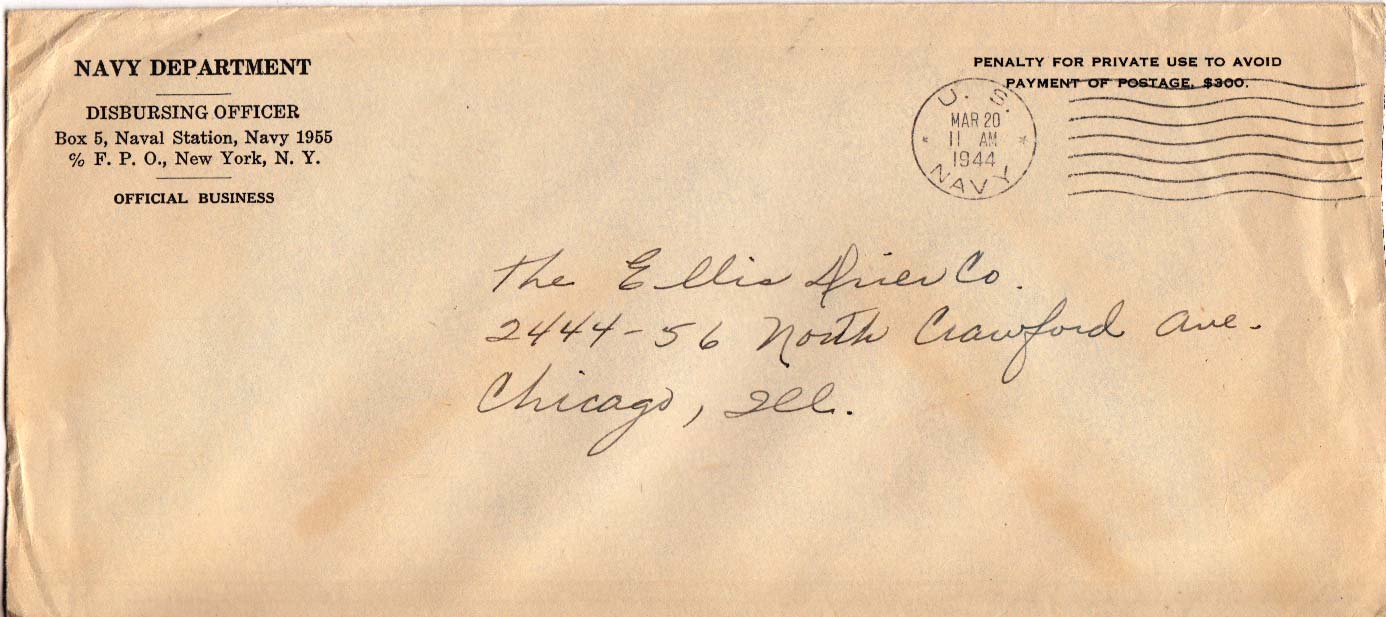 NAVY DEPARTMENT
DISBURSING OFFICER
Box 5, Naval Station, Navy 1955
% F. P. O., New York, N. Y.
OFFICIAL BUSINESS
PENALTY FOR PRIVATE USE TO AVOID
PAYMENT OF POSTAGE, $300.
U. S.
MAR 20
11 AM
1944
NAVY
The Ellis Drier Co.
2444-56 North Crawford Ave.
Chicago, Ill.